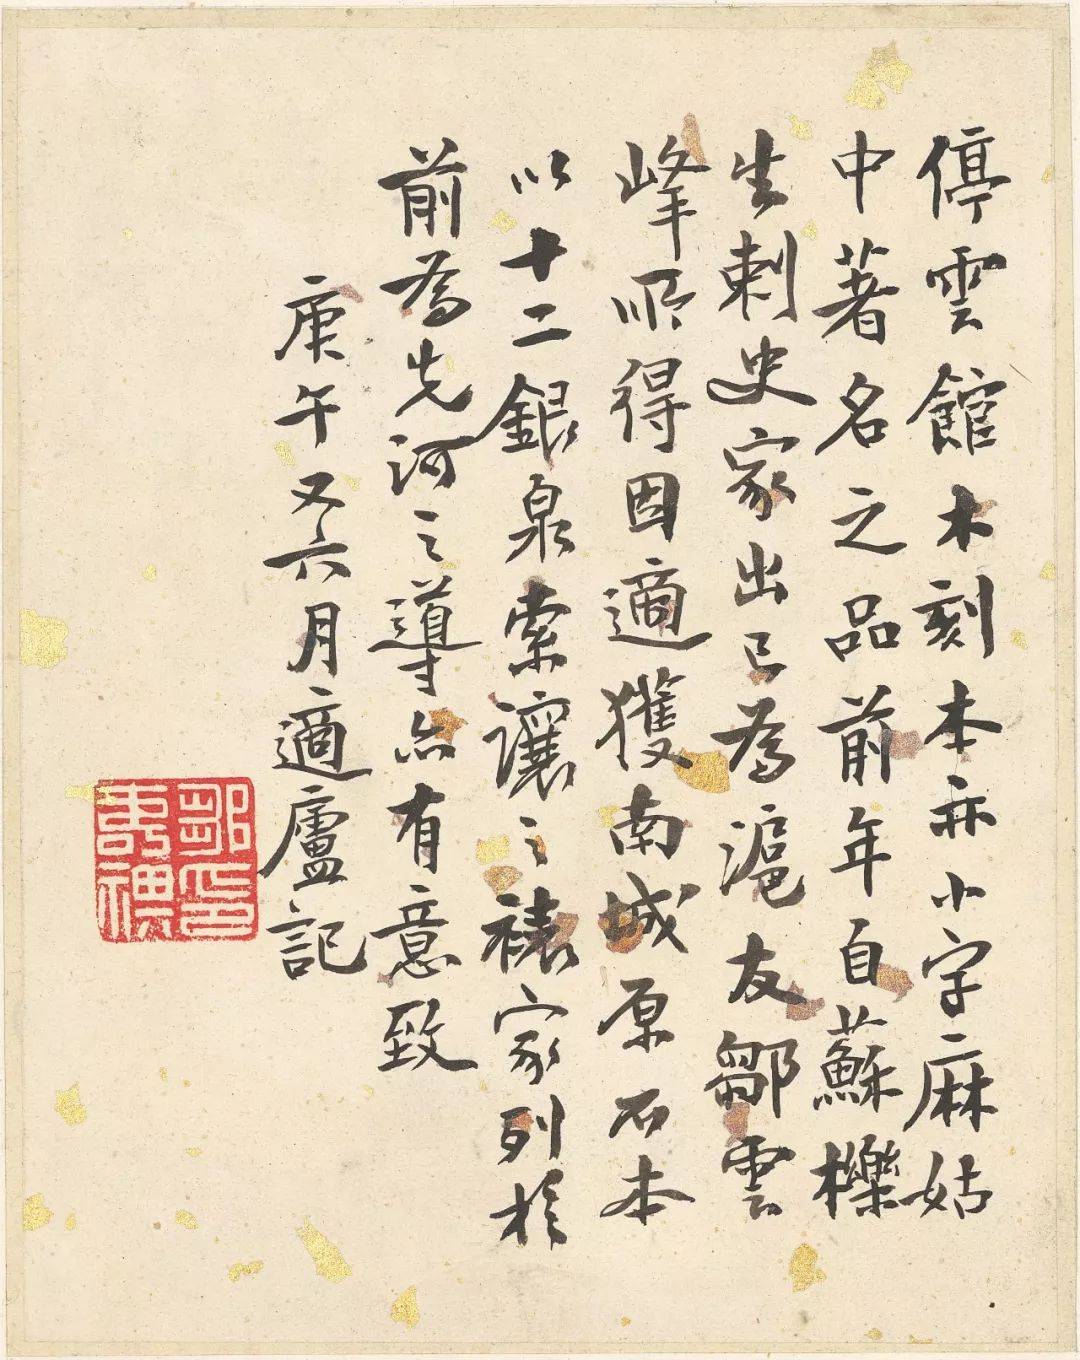 停雲館木刻本亦小字麻姑
中著名之品前年自蘇櫟
生刺史家出已為滬友鄒雲
峰順得因適獲南城原石本
以十二銀泉索讓之裱家列於
前為先河之導亦有意致
庚午又六月適廬記
鄒壽祺印